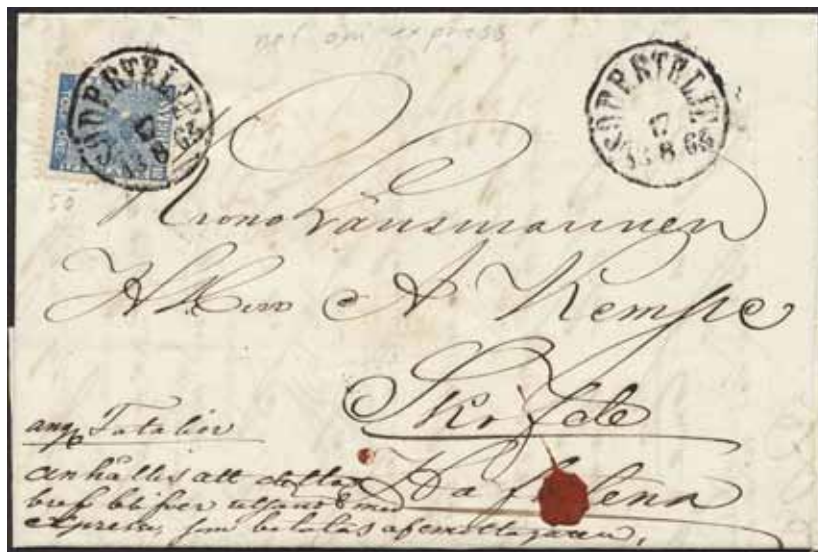 ref om express
SÖDERTELJE
17
8 63
SÖDERTELJE
17
8 63
TOLF ÖRE
SVERIGE
50
Krono Länsmannen
A Kempe
Sköfde
Hasslena
ang. Fatalier
anhålles att detta
bref blifver utsänd med
express, som betalas af emottagaren,